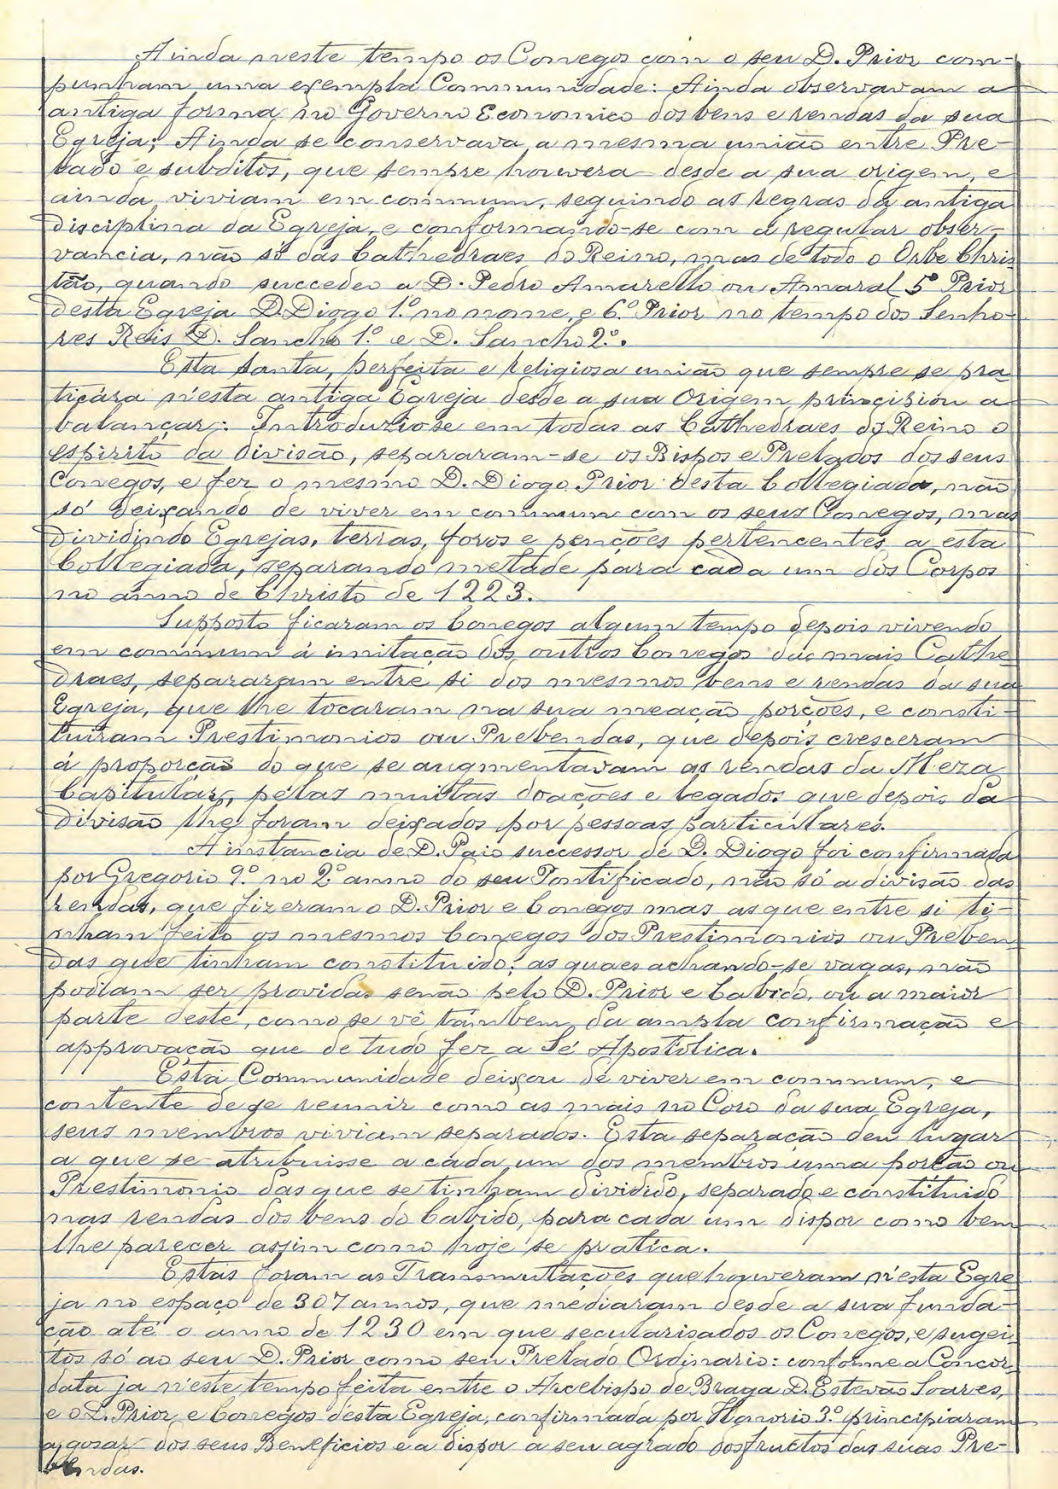 Ainda neste tempo os Conegos com o seu D. Prior com-
punham uma exempla Communidade: Ainda observavam a
antiga forma no Governo Economico dos bens e rendas da sua
Egreja; Ainda se conservava a mesma união entre Pre-
lado e subditos, que sempre houvera desde a sua origem, e
ainda viviam em commum, seguindo as regras da antiga
disciplina da Egreja, e conformando-se com a regular obser-
vancia, não só das Cathedraes do Reino, mas de todo o Orbe Chris
tão, quando succedeo a D. Pedro Amarello ou Amaral 5º Prior
desta Egreja D. Diogo 1.º no nome, e 6.º Prior no tempo dos Senho-
res Reis D. Sancho 1.º e D. Sancho 2.º.
Esta santa, perfeita e religiosa união que sempre se pra
ticára n'esta antiga Egreja desde a sua Origem principiou a
balançar: Introduzio-se em todas as Cathedraes do Reino o
espirito da divisão, separaram-se os Bispos e Prelados dos seus
Conegos, e fez o mesmo D. Diogo Prior desta Collegiada, não
só deixando de viver em commum com os seus Conegos, mas
dividindo Egrejas, terras, foros e penções pertencentes a esta
Collegiada, separando metade para cada um dos Corpos
no anno de Christo de 1223.
Supposto ficaram os Conegos algum tempo depois vivendo
em commum á imitação dos outros Conegos das mais Cathe
draes, separaram entre si dos mesmos bens e rendas da sua
Egreja, que lhe tocaram na sua meação porções, e consti-
tuiram Prestimonios ou Prebendas, que depois cresceram
á proporção do que se augmentavam as rendas da Meza
Capitular, pelas muitas doações e legados que depois da
divisão lhe foram deixados por pessoas particulares.
A instancia de D. Paio successor de D. Diogo foi confirmada
por Gregorio 9.º no 2.º anno do seu Pontificado, não só a divisão das
rendas, que fizeram o D. Prior e Conegos mas as que entre si ti-
nham feito os mesmos Conegos dos Prestimonios ou Preben
das que tinham constituido; as quaes achando-se vagas, não
podiam ser providas senão pelo D. Prior e Cabido, ou a maior
parte deste, como se vê tambem da ampla confirmação e
approvação que de tudo fez a Sé Apostolica.
Esta Communidade deixou de viver em commum, e
contente de se reunir como as mais no Coro da sua Egreja,
seus membros viviam separados. Esta separação deu lugar
a que se atribuisse a cada um dos membros uma porção ou
Prestimonio das que se tinham dividido, separado e constituido
nas rendas dos bens do Cabido, para cada um dispor como bem
lhe parecer assim como hoje se pratica.
Estas foram as Transmutações que houveram n'esta Egre
ja no espaço de 307 annos, que mediaram desde a sua funda-
ção até o anno de 1230 em que secularisados os Conegos, e sugei
tos só ao seu D. Prior como seu Prelado Ordinario: conforme a Concor
data ja n'este tempo feita entre o Arcebispo de Braga D. Estevão Soares,
e o D. Prior, e Conegos desta Egreja, confirmada por Honorio 3.º principiaram
a gosar dos seus Beneficios e a dispor a seu agrado dos fructos das suas Pre-
bendas.